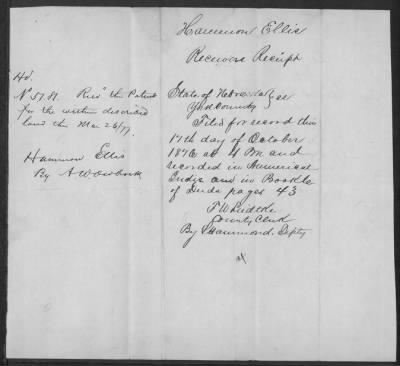 Hammon Ellis
Receivers Receipt
Hd.
No 5781. Recd the Patent
for the within described
land this Mar 26/77,
Hammon Ellis
By A W
State of Nebraska } ss
County
Filed for record this
17th day of October
1876 at 4 Pm and
recorded in Numerical
Index and in Book
of Deeds pages 43
County Clerk
By Hammond. Depty